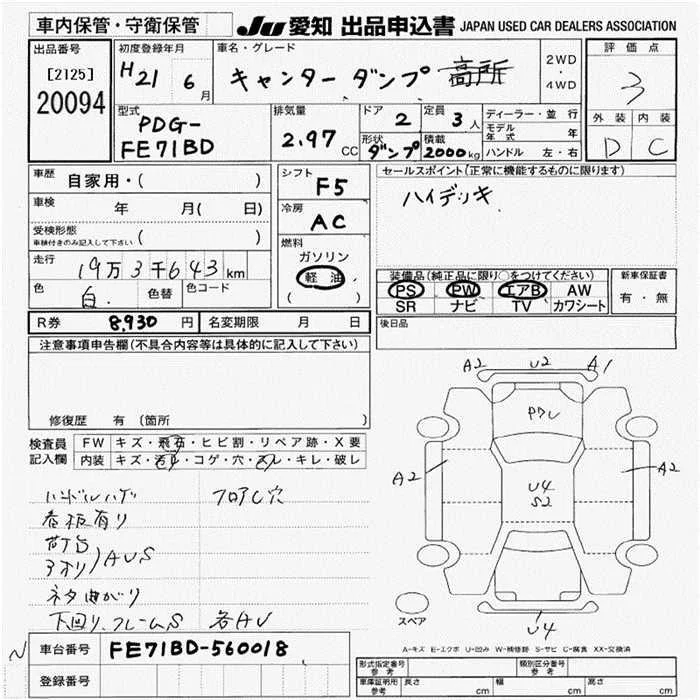 車内保管・守衛保管
JU 愛知 出品申込書 JAPAN USED CAR DEALERS ASSOCIATION
出品番号
[2125]
20094
初度登録年月
H21 6月
車名・グレード
キャンター ダンプ 高所
2WD
・
4WD
評価点
3
外装 内装
D C
型式
PDG-
FE71BD
排気量
2.97 CC
ドア 2
形状 ダンプ
定員 3人
積載 2000kg
ディーラー・並行
モデル年式 年
ハンドル 左・右
車歴 自家用・( )
車検 年 月( 日)
受検形態
車検付きのみ記入して下さい ( )
走行 19万3千643km
色 白. 色替 色コード
シフト F5
冷房 AC
燃料
ガソリン
軽油
( )
セールスポイント(正常に機能するものに限ります)
ハイデッキ
装備品(純正品に限り○をつけてください)
PS PW エアB AW
SR ナビ TV カワシート
新車保証書
有・無
後日品
R券 8,930円 名変期限 月 日
注意事項申告欄(不具合内容等は具体的に記入して下さい)
修復歴 有 (箇所 )
検査員記入欄
FW キズ・飛石・ヒビ割・リペア跡・X要
内装 キズ・汚れ・コゲ・穴・スレ・キレ・破レ
ハンドルハゲ フロアC穴
看板有り
荷台
3オリ)AUS
ネタ曲がり
下回り、フレームS 各AU
A2 U2 A1
A2 U4 S2 A2
U4
スペア
A-キズ E-エクボ U-凹み W-補修跡 S-サビ C-腐食 XX-交換済
車台番号 FE71BD-560018
登録番号
形式指定番号 参考 類別区分番号 参考
車庫証明用 参考 長さ cm 幅 cm 高さ cm